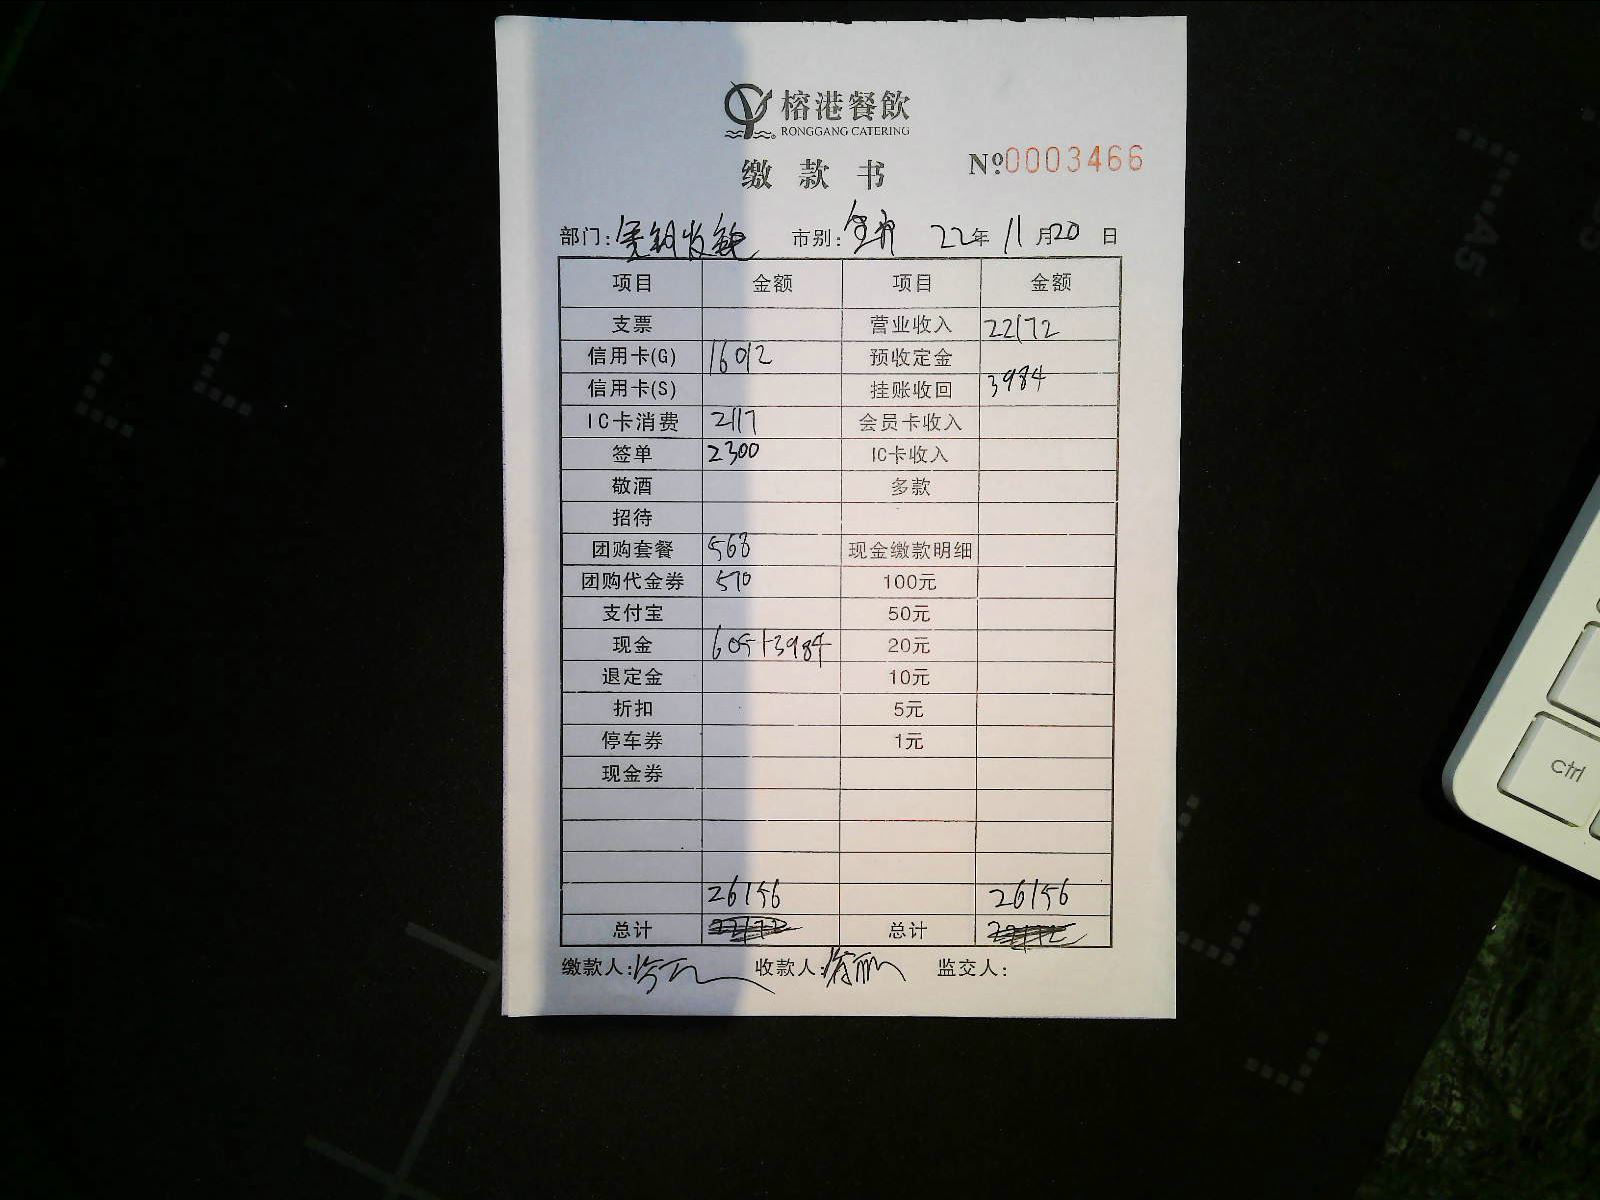 榕港餐飲
RONGGANG CATERING
缴款书
Nº 0003466
部门: 市别: 22年11月20日
项目 金额 项目 金额
支票 营业收入 22172
信用卡(G) 16012 预收定金
信用卡(S) 挂账收回 3984
IC卡消费 2117 会员卡收入
签单 2300 IC卡收入
敬酒 多款
招待
团购套餐 568 现金缴款明细
团购代金券 570 100元
支付宝 50元
现金 605+3984 20元
退定金 10元
折扣 5元
停车券 1元
现金券
26156 26156
总计 总计
缴款人: 收款人: 监交人:
Ctrl